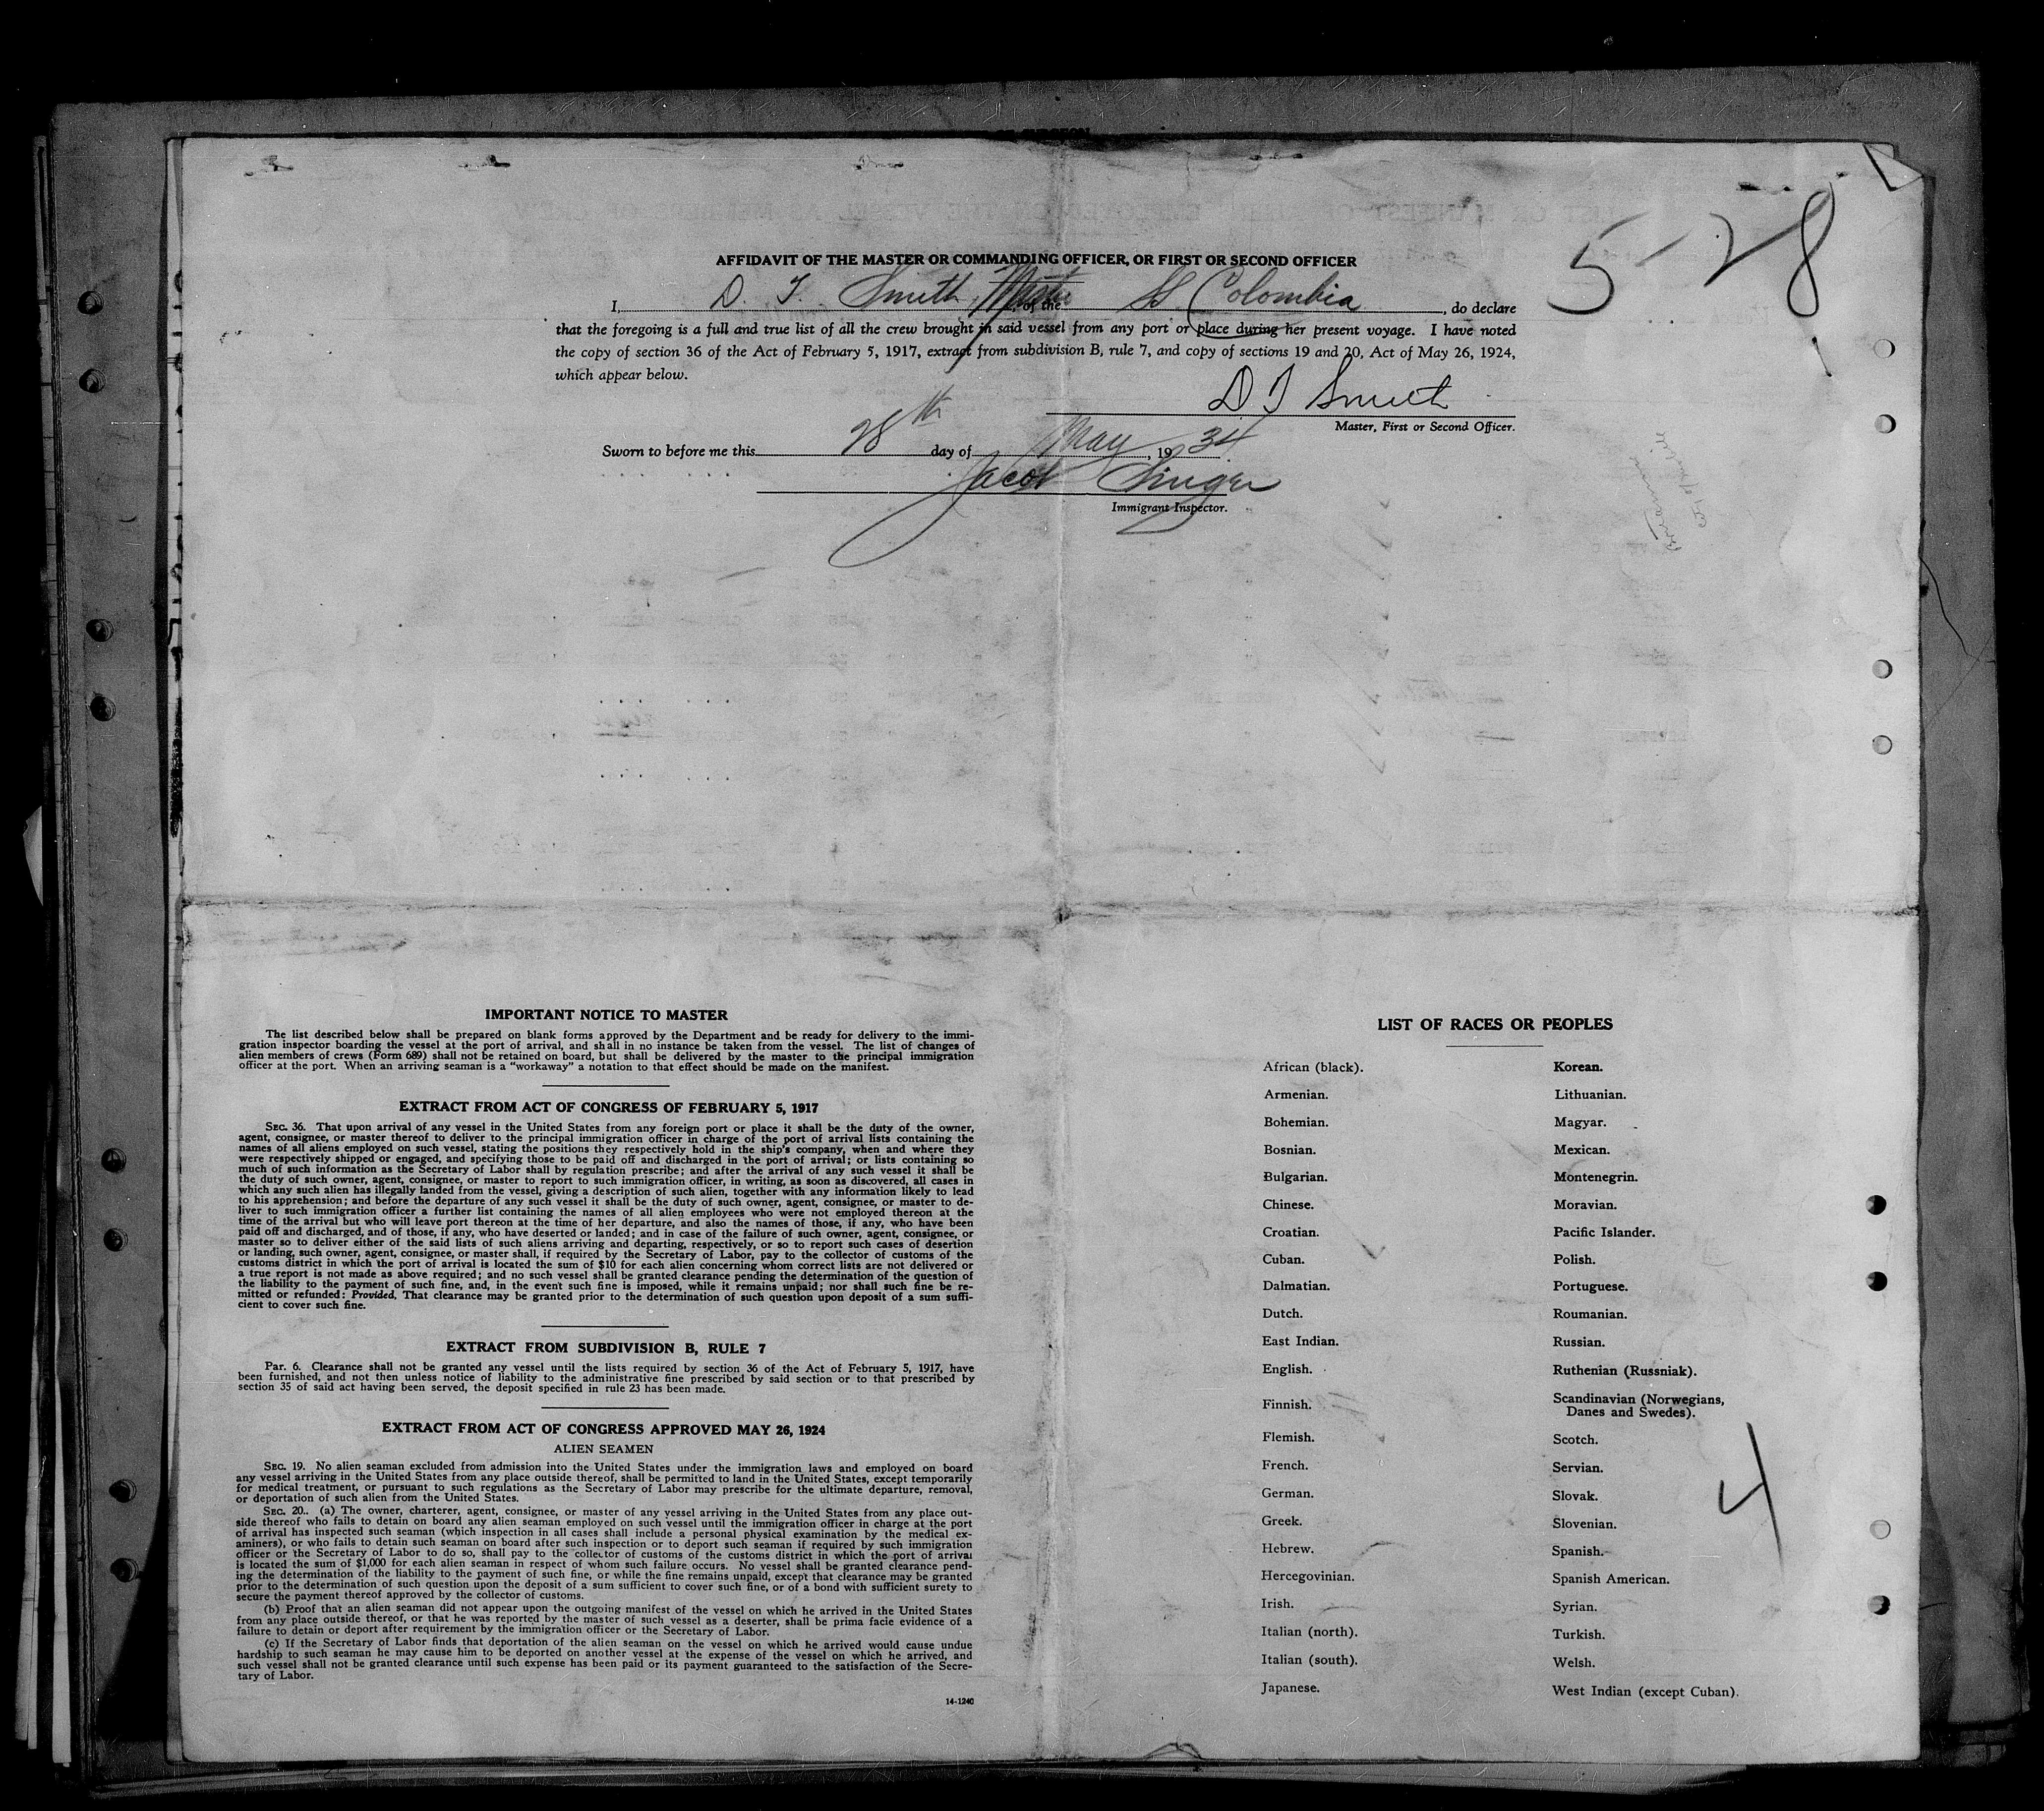 5-28
AFFIDAVIT OF THE MASTER OR COMMANDING OFFICER, OR FIRST OR SECOND OFFICER
I, D. T. Smith, Master of the SS Colombia, do declare
that the foregoing is a full and true list of all the crew brought in said vessel from any port or place during her present voyage. I have noted
the copy of section 36 of the Act of February 5, 1917, extract from subdivision B, rule 7, and copy of sections 19 and 20, Act of May 26, 1924,
which appear below.
D T Smith
Master, First or Second Officer.
Sworn to before me this 28th day of May, 1934
Jacob Singer
Immigrant Inspector.
IMPORTANT NOTICE TO MASTER
The list described below shall be prepared on blank forms approved by the Department and be ready for delivery to the immi-
gration inspector boarding the vessel at the port of arrival, and shall in no instance be taken from the vessel. The list of changes of
alien members of crews (Form 689) shall not be retained on board, but shall be delivered by the master to the principal immigration
officer at the port. When an arriving seaman is a "workaway" a notation to that effect should be made on the manifest.
EXTRACT FROM ACT OF CONGRESS OF FEBRUARY 5, 1917
SEC. 36. That upon arrival of any vessel in the United States from any foreign port or place it shall be the duty of the owner,
agent, consignee, or master thereof to deliver to the principal immigration officer in charge of the port of arrival lists containing the
names of all aliens employed on such vessel, stating the positions they respectively hold in the ship's company, when and where they
were respectively shipped or engaged, and specifying those to be paid off and discharged in the port of arrival; or lists containing so
much of such information as the Secretary of Labor shall by regulation prescribe; and after the arrival of any such vessel it shall be
the duty of such owner, agent, consignee, or master to report to such immigration officer, in writing, as soon as discovered, all cases in
which any such alien has illegally landed from the vessel, giving a description of such alien, together with any information likely to lead
to his apprehension; and before the departure of any such vessel it shall be the duty of such owner, agent, consignee, or master to de-
liver to such immigration officer a further list containing the names of all alien employees who were not employed thereon at the
time of the arrival but who will leave port thereon at the time of her departure, and also the names of those, if any, who have been
paid off and discharged, and of those, if any, who have deserted or landed; and in case of the failure of such owner, agent, consignee, or
master so to deliver either of the said lists of such aliens arriving and departing, respectively, or so to report such cases of desertion
or landing, such owner, agent, consignee, or master shall, if required by the Secretary of Labor, pay to the collector of customs of the
customs district in which the port of arrival is located the sum of $10 for each alien concerning whom correct lists are not delivered or
a true report is not made as above required; and no such vessel shall be granted clearance pending the determination of the question of
the liability to the payment of such fine, and, in the event such fine is imposed, while it remains unpaid; nor shall such fine be re-
mitted or refunded: Provided, That clearance may be granted prior to the determination of such question upon deposit of a sum suffi-
cient to cover such fine.
EXTRACT FROM SUBDIVISION B, RULE 7
PAR. 6. Clearance shall not be granted any vessel until the lists required by section 36 of the Act of February 5, 1917, have
been furnished, and not then unless notice of liability to the administrative fine prescribed by said section or to that prescribed by
section 35 of said act having been served, the deposit specified in rule 23 has been made.
EXTRACT FROM ACT OF CONGRESS APPROVED MAY 26, 1924
ALIEN SEAMEN
SEC. 19. No alien seaman excluded from admission into the United States under the immigration laws and employed on board
any vessel arriving in the United States from any place outside thereof, shall be permitted to land in the United States, except temporarily
for medical treatment, or pursuant to such regulations as the Secretary of Labor may prescribe for the ultimate departure, removal,
or deportation of such alien from the United States.
SEC. 20.. (a) The owner, charterer, agent, consignee, or master of any vessel arriving in the United States from any place out-
side thereof who fails to detain on board any alien seaman employed on such vessel until the immigration officer in charge at the port
of arrival has inspected such seaman (which inspection in all cases shall include a personal physical examination by the medical ex-
aminers), or who fails to detain such seaman on board after such inspection or to deport such seaman if required by such immigration
officer or the Secretary of Labor to do so, shall pay to the collector of customs of the customs district in which the port of arrival
is located the sum of $1,000 for each alien seaman in respect of whom such failure occurs. No vessel shall be granted clearance pend-
ing the determination of the liability to the payment of such fine, or while the fine remains unpaid, except that clearance may be granted
prior to the determination of such question upon the deposit of a sum sufficient to cover such fine, or of a bond with sufficient surety to
secure the payment thereof approved by the collector of customs.
(b) Proof that an alien seaman did not appear upon the outgoing manifest of the vessel on which he arrived in the United States
from any place outside thereof, or that he was reported by the master of such vessel as a deserter, shall be prima facie evidence of a
failure to detain or deport after requirement by the immigration officer or the Secretary of Labor.
(c) If the Secretary of Labor finds that deportation of the alien seaman on the vessel on which he arrived would cause undue
hardship to such seaman he may cause him to be deported on another vessel at the expense of the vessel on which he arrived, and
such vessel shall not be granted clearance until such expense has been paid or its payment guaranteed to the satisfaction of the Secre-
tary of Labor.
14-1240
LIST OF RACES OR PEOPLES
African (black).
Armenian.
Bohemian.
Bosnian.
Bulgarian.
Chinese.
Croatian.
Cuban.
Dalmatian.
Dutch.
East Indian.
English.
Finnish.
Flemish.
French.
German.
Greek.
Hebrew.
Hercegovinian.
Irish.
Italian (north).
Italian (south).
Japanese.
Korean.
Lithuanian.
Magyar.
Mexican.
Montenegrin.
Moravian.
Pacific Islander.
Polish.
Portuguese.
Roumanian.
Russian.
Ruthenian (Russniak).
Scandinavian (Norwegians,
Danes and Swedes).
Scotch.
Servian.
Slovak.
Slovenian.
Spanish.
Spanish American.
Syrian.
Turkish.
Welsh.
West Indian (except Cuban).
4